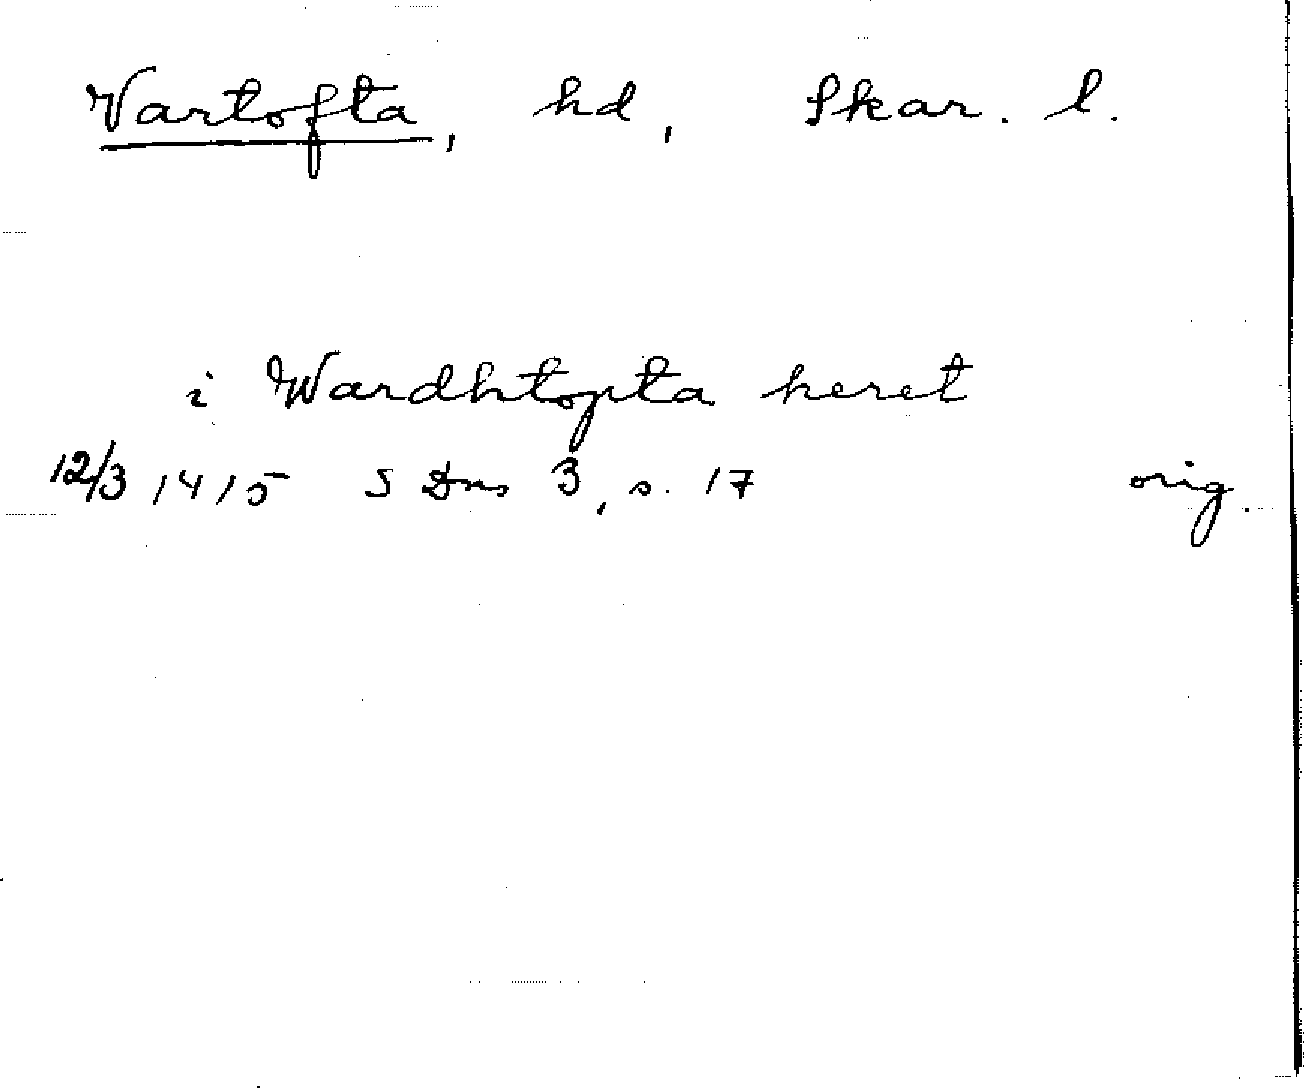 Vartofta, hd, Skar. l.
i Wardhtopta heret
12/3 1415 S Dns 3, s. 17 orig.